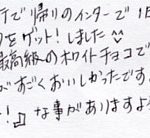 テで帰りのインターで1日
をゲット!しました
最高級のホワイトチョコで
がすごくおいしかったです
!な事がありますよ